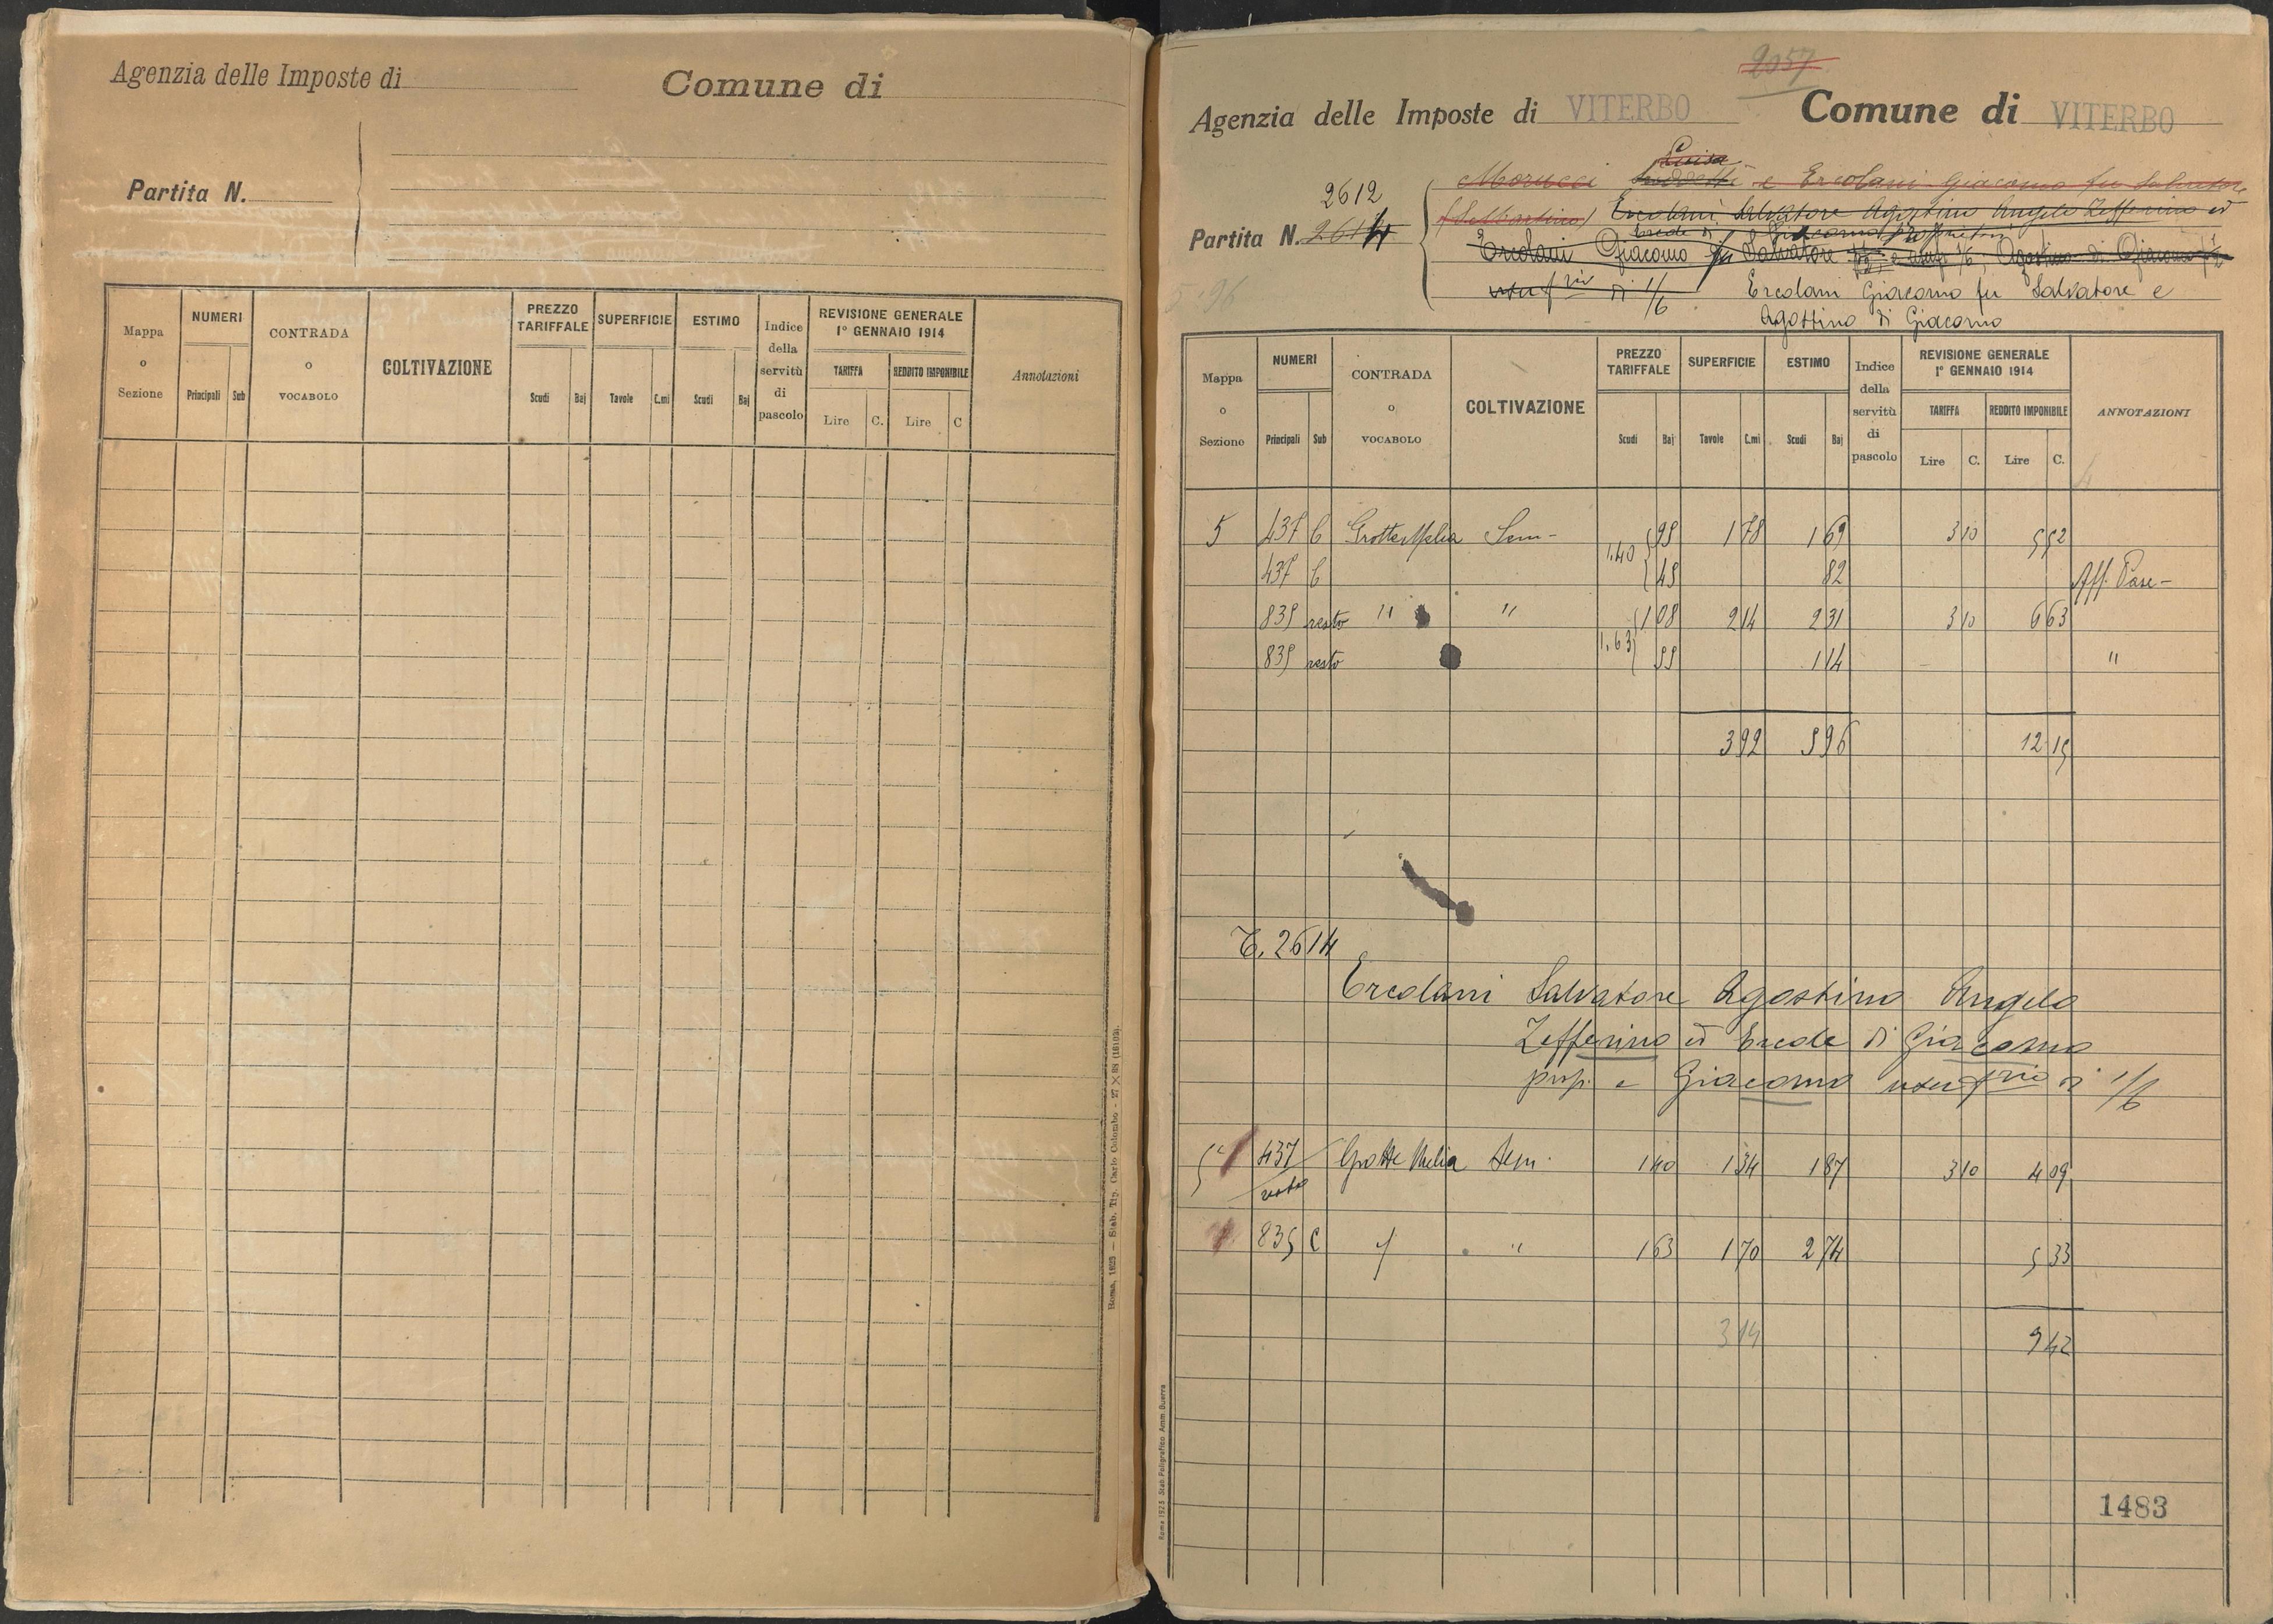 Agenzia delle Imposte di Comune di
Partita N.
Mappa o Sezione NUMERI Principali Sub CONTRADA o VOCABOLO COLTIVAZIONE PREZZO TARIFFALE Scudi Baj SUPERFICIE Tavole C.mi ESTIMO Scudi Baj Indice della servitù di pascolo REVISIONE GENERALE 1° GENNAIO 1914 TARIFFA Lire C. REDDITO IMPONIBILE Lire C Annotazioni
Roma, 1923 — Stab. Tip. Carlo Colombo - 27 X 88 (16103).
2057
Agenzia delle Imposte di VITERBO Comune di VITERBO
Luisa
Morucci e Ercolani Giacomo fu Salvatore
2612
Ercolani Salvatore Agostino Angelo Zefferino ed
Partita N. 2614
Ercole di Giacomo proprietari
Ercolani Giacomo fu Salvatore Agostino di Giacomo
di 1/6 Ercolani Giacomo fu Salvatore e
Agostino di Giacomo
Mappa o Sezione NUMERI Principali Sub CONTRADA o VOCABOLO COLTIVAZIONE PREZZO TARIFFALE Scudi Baj SUPERFICIE Tavole C.mi ESTIMO Scudi Baj Indice della servitù di pascolo REVISIONE GENERALE 1° GENNAIO 1914 TARIFFA Lire C. REDDITO IMPONIBILE Lire C. ANNOTAZIONI
5 437 b Grotte Melia Sem- 1.40 95 1 78 1 69 3 10 5 52
437 b 45 82 Aff. Pasc-
835 resto " " 1 08 2 14 2 31 3 10 6 63
835 resto 1.63 55 1 14 "
3 92 5 96 12 15
T. 2614
Ercolani Salvatore Agostino Angelo
Zefferino ed Ercole di Giacomo
prop. e Giacomo usuf rio di 1/6
5 437 resto Grotte Melia Sem. 1 40 1 34 1 87 3 10 4 09
835 c " " 1 63 1 70 2 74 5 33
9 42
Roma 1925 Stab Poligrafico Amm Guerra
1483